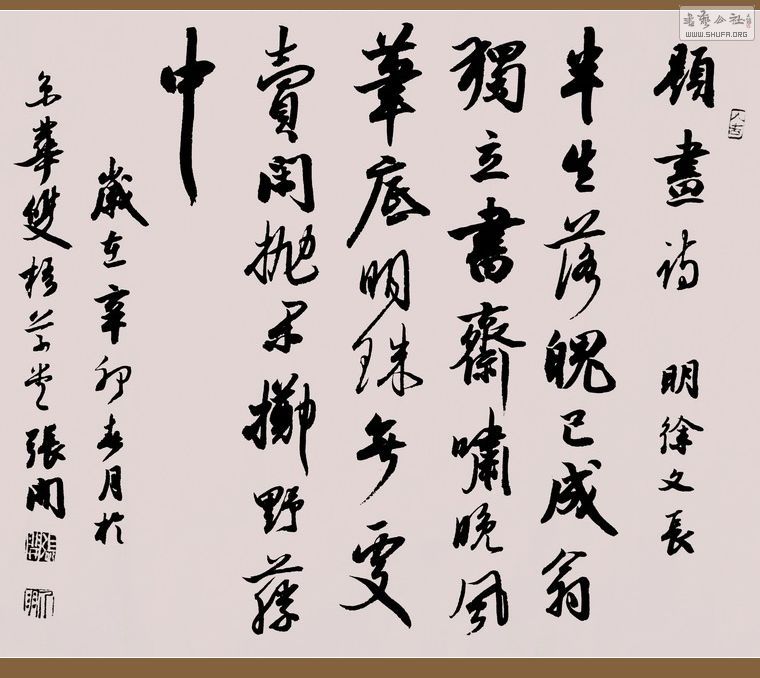 書藝公社
WWW.SHUFA.ORG
題畫詩 明徐文長
半生落魄已成翁
獨立書齋嘯晚風
筆底明珠無處
賣閑抛閑擲野藤
中
歲在辛卯春月於
京華雙梧草堂張開